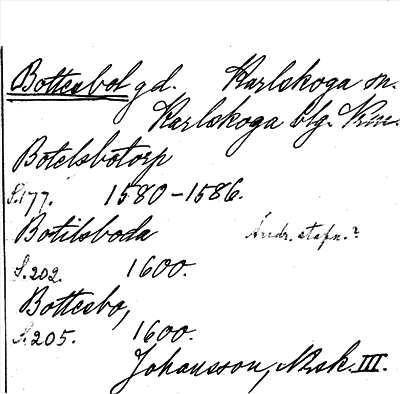 Bottesbol gd. Karlskoga sn.
Karlskoga blg. Krm.
Botelsbotorp
S.177. 1580-1586.
Botilsboda Ändr. stafn.?
S.202. 1600.
Bottesbo,
S.205. 1600.
Johansson, Nbsk. III.